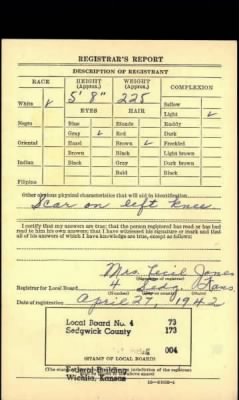 REGISTRAR'S REPORT
DESCRIPTION OF REGISTRANT
RACE HEIGHT (Approx.) WEIGHT (Approx.) COMPLEXION
5' 8" 225 Sallow
White ✓ EYES HAIR Light ✓
Negro Blue Blonde Ruddy
Gray ✓ Red Dark
Oriental Hazel Brown ✓ Freckled
Brown Black Light brown
Indian Black Gray Dark brown
Bald Black
Filipino
Other obvious physical characteristics that will aid in identification
Scar on left knee
I certify that my answers are true; that the person registered has read or has had
read to him his own answers; that I have witnessed his signature or mark and that
all of his answers of which I have knowledge are true, except as follows:
Mrs. Cecil Jones
Registrar for Local Board 4 Sedg. Kans.
(Number) (City or county) (State)
Date of registration April 27, 1942
Local Board No. 4 73
Sedgwick County 173
004
STAMP OF LOCAL BOARD
Federal Building
Wichita, Kansas